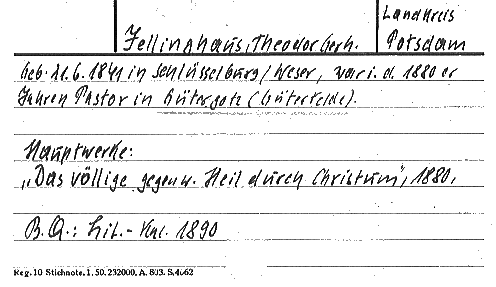 Jellinghaus, Theodor Gerh.
Landkreis
Potsdam
Geb. 21.6.1841 in Schlüsselburg/Weser, war i. d. 1880 er
Jahren Pastor in Gütergotz (Güterfelde).
Hauptwerke:
„Das völlige gegenw. Heil durch Christum", 1880,
B.Q.: Lit.-Kal. 1890
Reg. 10 Stichnote. 1. 50. 232000. A. 803. S. 4062